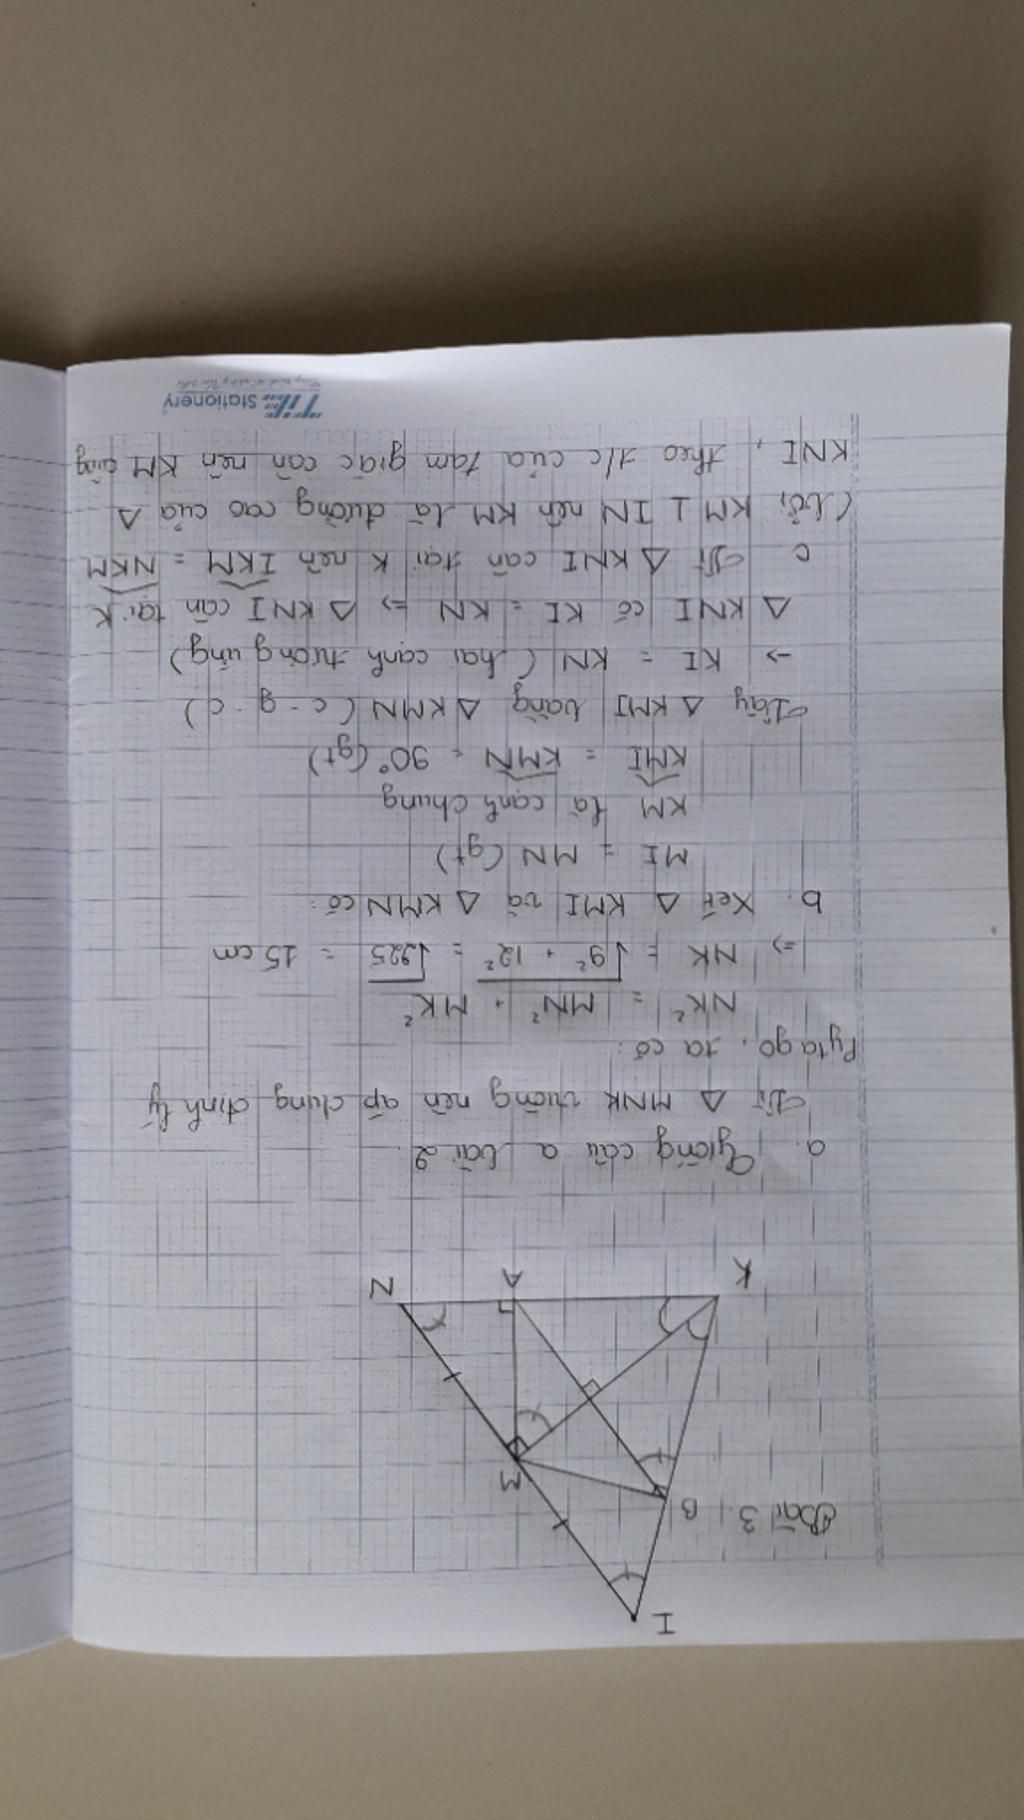 Bài 3
I
B
M
K
A
N
a. Giống câu a bài 2.
Vì Δ MNK vuông nên áp dụng định lý
Pytago, ta có:
NK² = MN² + MK²
=> NK = √9² + 12² = √225 = 15 cm
b. Xét Δ KMI và Δ KMN có:
MI = MN (gt)
KM là cạnh chung
KMI = KMN = 90° (gt)
Vậy Δ KMI bằng Δ KMN (c - g - c)
-> KI = KN (hai cạnh tương ứng)
Δ KNI có KI = KN => Δ KNI cân tại K
c Vì Δ KNI cân tại K nên IKM = NKM
KM ⊥ IN nên KM là đường cao của Δ
KNI, theo t/c của tam giác cân nên KM cũng
Stationery